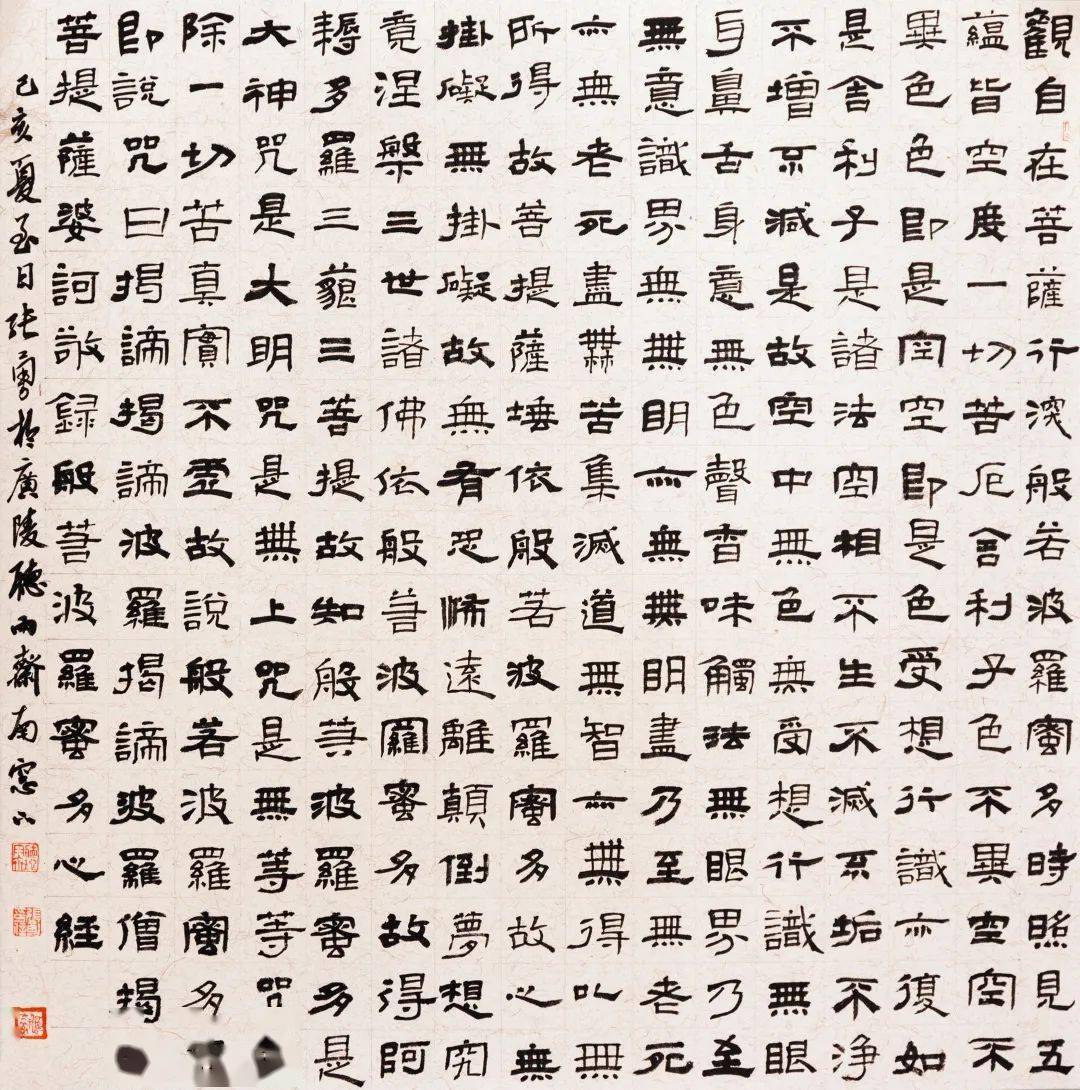 觀自在菩薩行深般若波羅蜜多時照見五
蘊皆空度一切苦厄舍利子色不異空空不
異色色即是空空即是色受想行識亦復如
是舍利子是諸法空相不生不滅不垢不淨
不增不減是故空中無色無受想行識無眼
耳鼻舌身意無色聲香味觸法無眼界乃至
無意識界無無明亦無無明盡乃至無老死
亦無老死盡無苦集滅道無智亦無得以無
所得故菩提薩埵依般若波羅蜜多故心無
掛礙無掛礙故無有恐怖遠離顛倒夢想究
竟涅槃三世諸佛依般若波羅蜜多故得阿
耨多羅三藐三菩提故知般若波羅蜜多是
大神咒是大明咒是無上咒是無等等咒
除一切苦真實不虛故說般若波羅蜜多
即說咒曰揭諦揭諦波羅揭諦波羅僧揭
菩提薩婆訶敬錄般若波羅蜜多心經
己亥夏至日張勇於廣陵聽雨齋南窗下